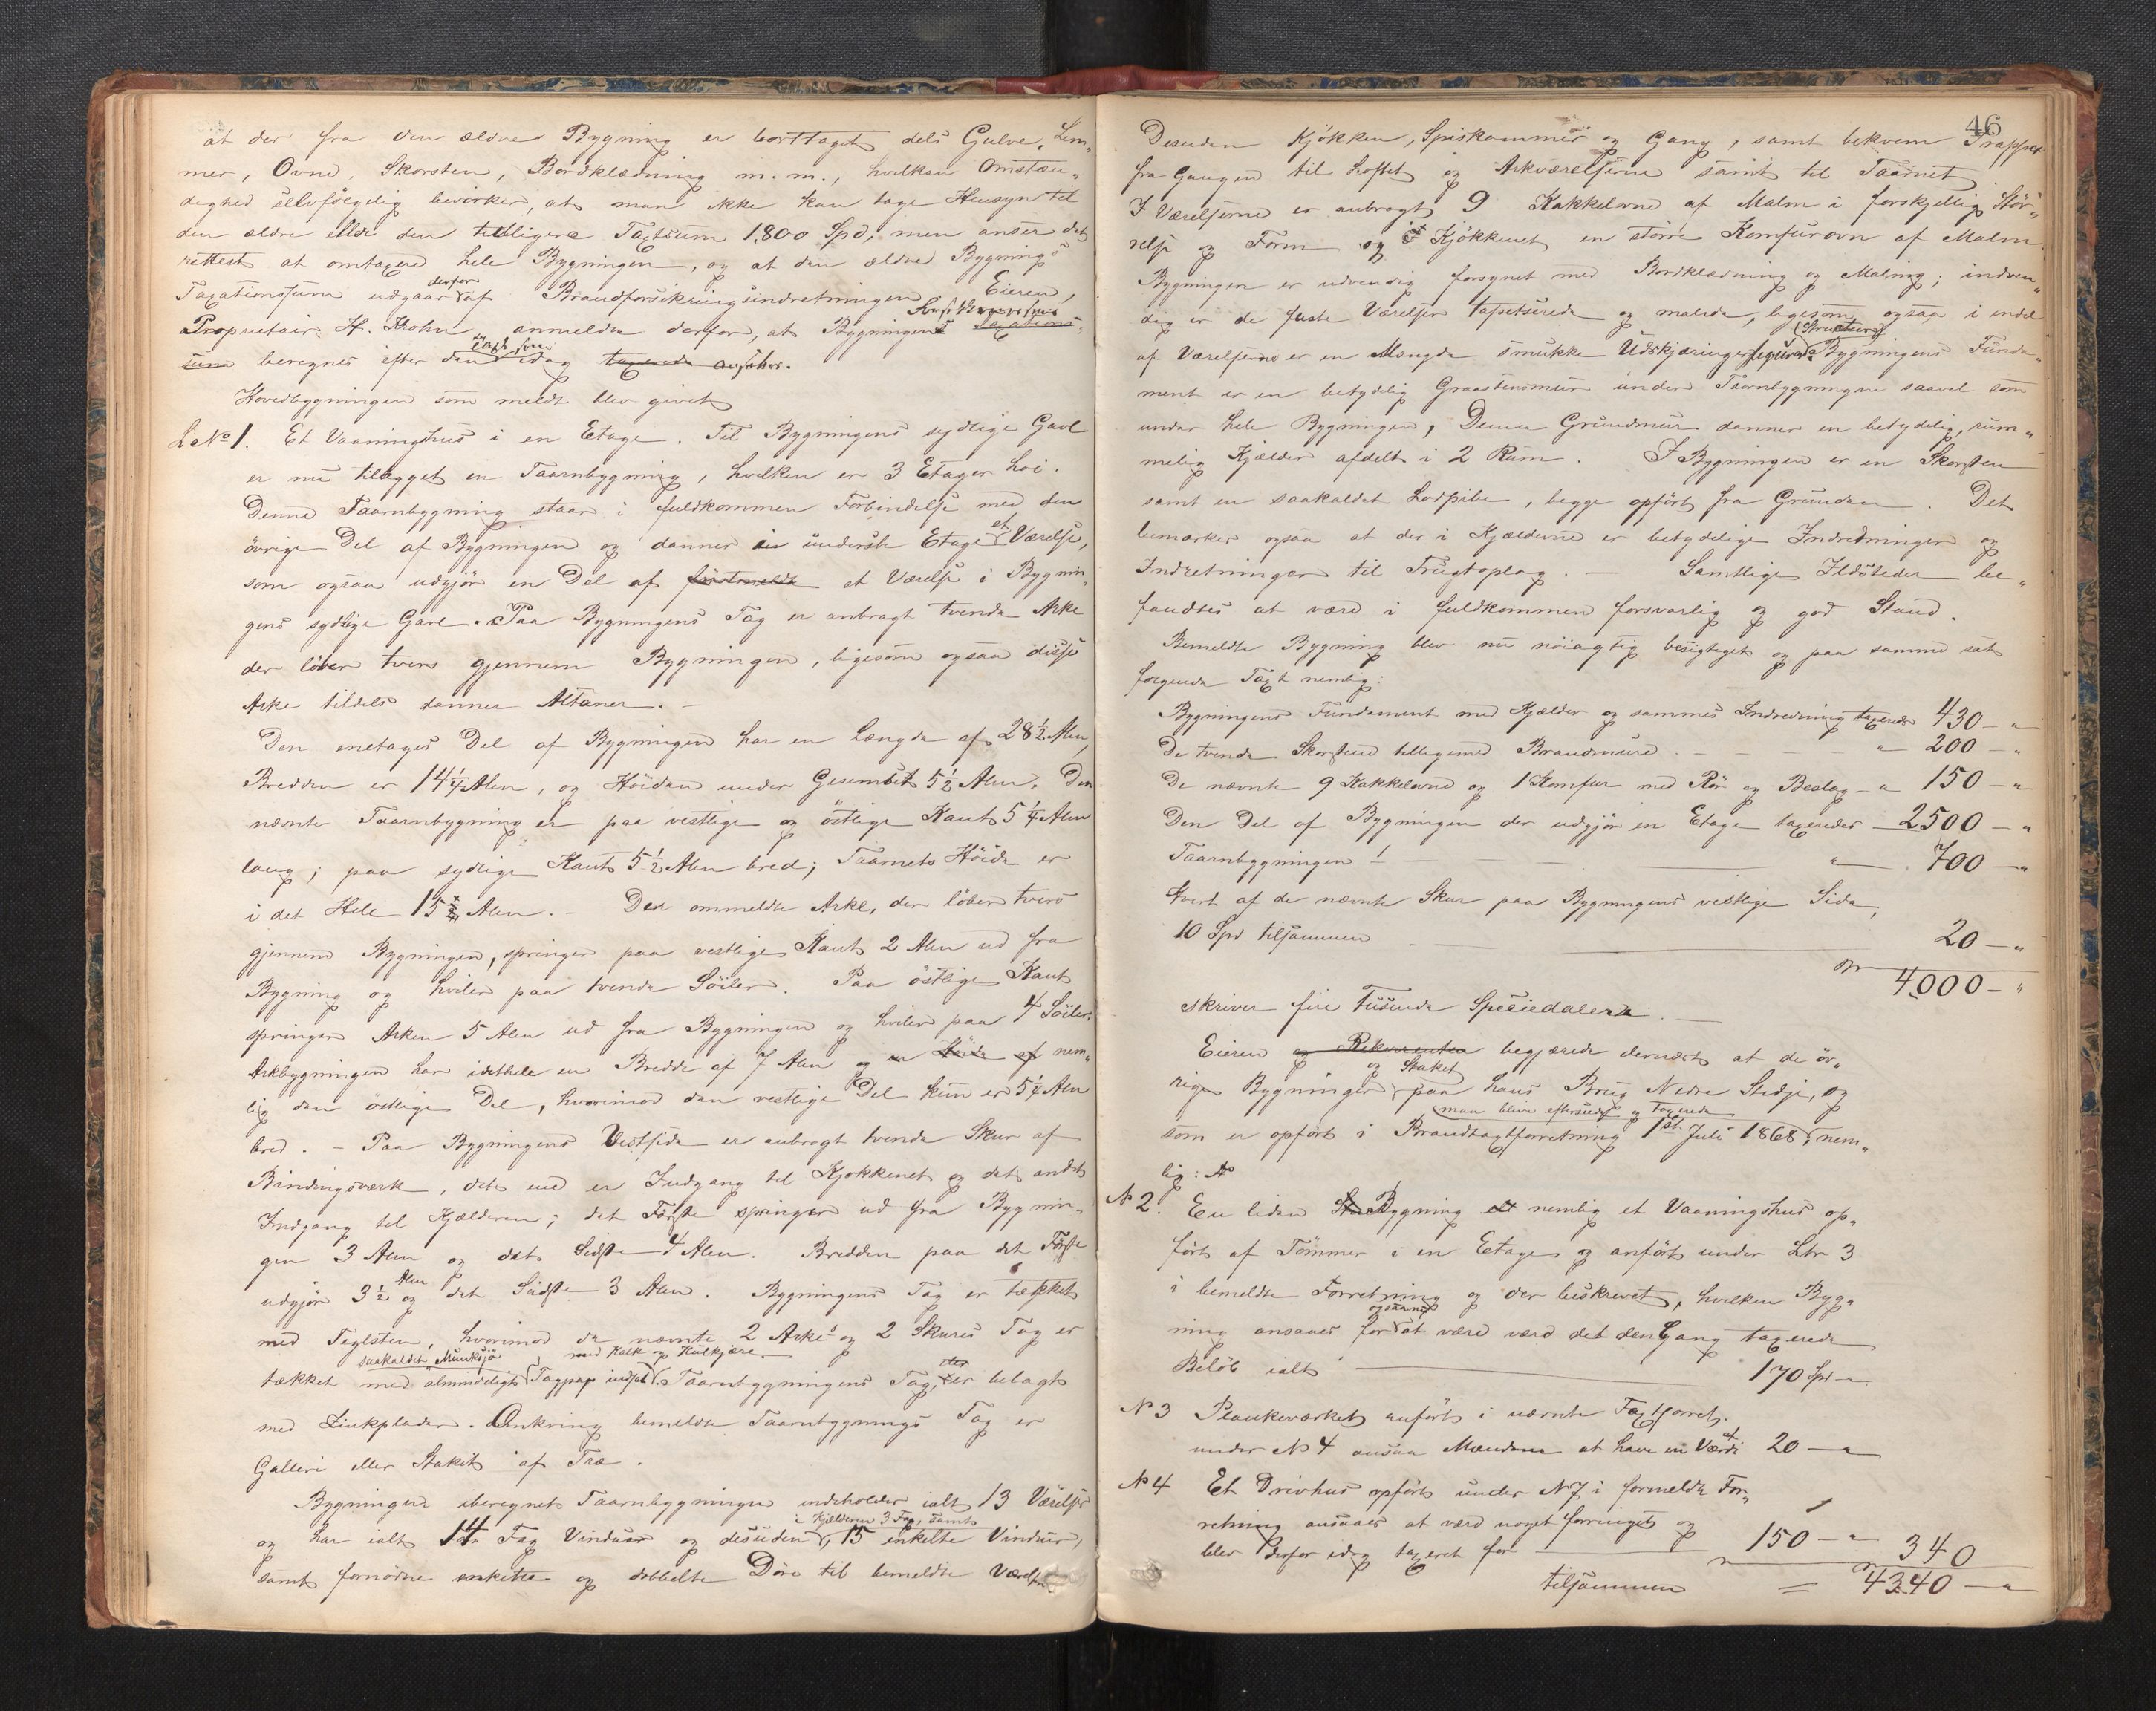 at der fra den ældre Bygning er borttaget dels Gulve, Lem„
mer, Ovne, Skorsten, Bordklædning m. m., hvilken Omstæn„
dighed selvfølgelig bevirker, at man ikke kan tage Hensyn til
den ældre eller den tidligere Taxtsum 1,800 Spd, men anser det
rettest at omtaxere hele Bygningen, og at den ældre Bygnings
Taxationssum udgaar derfor af Brandforsikringsindretningen. Eieren,
Proprietair H. Krohn anmelder derfor, at Bygningens Taxations„
sum beregnes efter den idag taxerede
Hovedbygningen som meldt blev givet
L No 1. Et Vaaningshus i en Etage. Til Bygningens sydlige Gavl
er nu tilbygget en Taarnbygning, hvilken er 3 Etager høi.
Denne Taarnbygning staar i fuldkommen Forbindelse med den
øvrige Del af Bygningen og danner i underste Etage et Værelse,
som ogsaa udgjør en Del af et Værelse i Bygnin„
gens sydlige Gavl. Paa Bygningens Tag er anbragt tvende Arke
der løber tvers gjennem Bygningen, ligesom ogsaa disse
Arke tildels danner Altaner. –
Den enetages Del af Bygningen har en Længde af 28 1/2 Alen,
Bredden er 14 1/4 Alen, og Høiden under Gesembset 5 1/2 Alen. Den
nævnte Taarnbygning er paa vestlige og østlige Kant 5 1/4 Alen
lang; paa sydlige Kant 5 1/2 Alen bred; Taarnets Høide er
i det Hele 15 Alen. – Den ommeldte Arke, der løber tvers
gjennem Bygningen, springer paa vestlige Kant 2 Alen ud fra
Bygning og hviler paa tvende Søiler. Paa østlige Kant
springer Arken 5 Alen ud fra Bygningen og hviler paa 4 Søiler.
Arkbygningen har idethele en Bredde af 7 Alen og en Høide af nem„
lig den østlige Del, hvorimod den vestlige Del kun er 5 1/4 Alen
bred. – Paa Bygningens Vestside er anbragt tvende Skur af
Bindingsværk, det ene er Indgang til Kjøkkenet og det andet
Indgang til Kjælderen; det Første springer ud fra Bygnin„
gen 3 Alen og det Sidste 4 Alen. Bredden paa det Første
udgjør 3 1/2 Alen og det Sidste 3 Alen. Bygningens Tag er tækket
med Teglsten, hvorimod de nævnte 2 Arke's og 2 Skures Tag er
saakaldet Munksjö med Kalk og Kulkjære
tækket med almindeligt Tagpap indsat. Taarnbygningens Tag er belagt
med Zinkplader. Omkring bemeldte Taarnbygnings Tag er
Galleri eller Stakit af Træ.
Bygningen iberegnet Taarnbygningen indeholder ialt 13 Værelser
i Kjælderen 3 Fag, samt
og har ialt 14 Fag Vinduer og desuden 15 enkelte Vinduer,
samt fornødne enkelte og dobbelte Døre til bemeldte Værelser
46
Desuden Kjøkken, Spiskammer og Gang, samt bekvem Trapper
fra Gangen til Loftet og Arkværelserne samt til Taarnet
I Værelserne er anbragt 9 Kakkelovne af Malm i forskjellig Stør„
relse og Form og i Kjøkkenet en større Komfurovn af Malm.
Bygningen er udvendig forsynet med Bordklædning og Maling; indven„
dig er de fleste Værelser tapetserede og malede, ligesom ogsaa i endel
af Værelserne er en Mængde smukke Udskjæringer. Bygningens Funda„
ment er en betydelig Graastensmur under Taarnbygningen saavel som
under hele Bygningen, Denne Grundmur danner en betydelig, rum„
melig Kjælder afdelt i 2 Rum. I Bygningen er en Skorsten
samt en saakaldet Lodpibe, begge opført fra Grunden. Det
bemærkes ogsaa at der i Kjælderne er betydelige Indredninger og
Indretninger til Frugtoplag. – Samtlige Ildsteder be„
fandtes at være i fuldkommen forsvarlig og god Stand.
Bemeldte Bygning blev nu nøiagtig besigtiget og paa samme sat
følgende Taxt nemlig:
Bygningens Fundament med Kjælder og sammes Indredning taxeredes 430 – „
De tvende Skorstene tilligemed Brandmure – „ 200 – „
De nævnte 9 Kakkelovne og 1 Komfur med Rør og Beslag – „ 150 – „
Den Del af Bygningen der udgjør en Etage taxeredes – 2500 – „
Taarnbygningen – „ 700 – „
Hvert af de nævnte Skur paa Bygningens vestlige Side,
10 Spd tilsammen 20 – „
4000 – „
skriver fire Tusende Speciedaler. –
Eieren og Rekvirenten begjærede dernæst at de øv„
rige Bygninger og Staket paa hans Brug Nedre Stedje, og
maa blive efterseede og taxerede
som er opført i Brandtaxtforretning 1st Juli 1868, nem„
lig:
No 2. En liden Bygning nemlig et Vaaningshus op„
ført af Tømmer i en Etage og anført under Ltr 3
i bemeldte Forretning og der beskrevet, hvilken Byg„
ning ansaaes for ogsaa nu at være værd det den Gang taxerede
Beløb ialt 170 Spd „
No 3 Plankeværket anført i nævnte Taxtforret.
under No 4 ansaa Mændene at have en Værdi af 20 – „
No 4 Et Drivhus opført under No 7 i formeldte For„
retning ansaaes at være noget forringet og
blev derfor idag taxeret for 150 – „ 340
tilsammen = 4340 – „